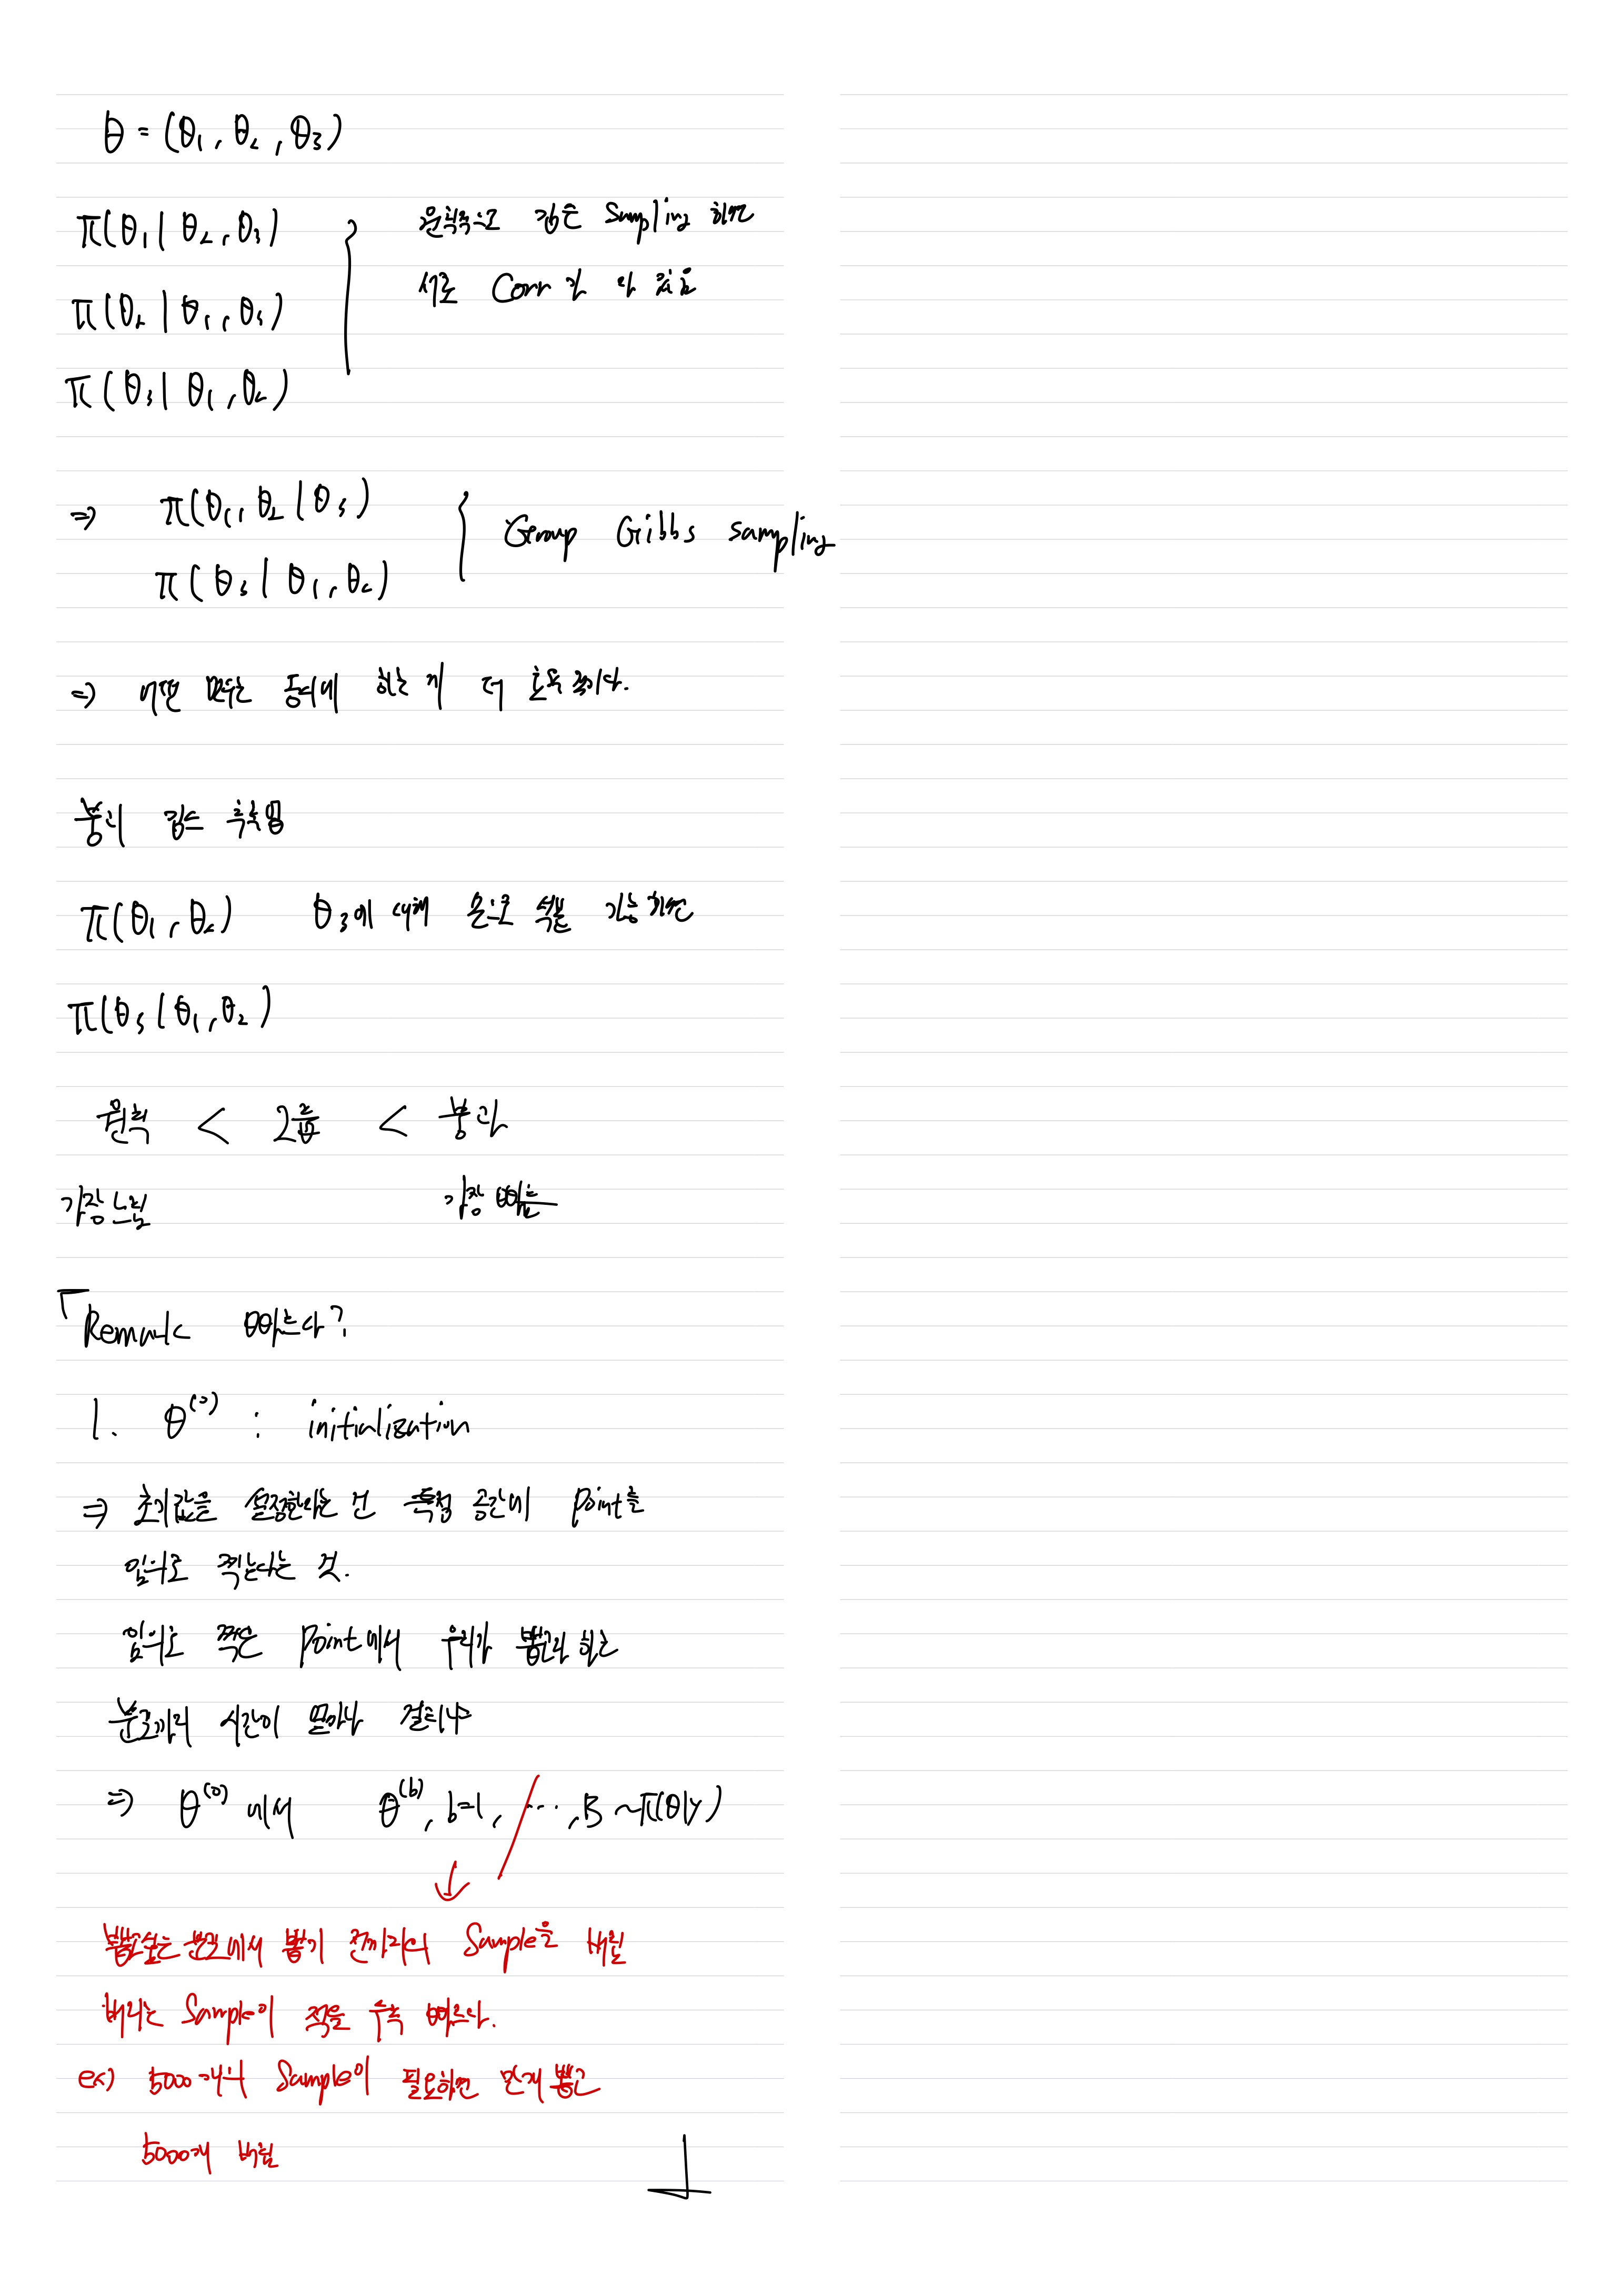 θ = (θ₁, θ₂, θ₃)
π(θ₁ | θ₂, θ₃) 원칙적으로 깁스 Sampling 하면
π(θ₂ | θ₁, θ₃) 서로 Corr 가 커질
π(θ₃ | θ₁, θ₂)
⇒ π(θ₁, θ₂ | θ₃)
Group Gibbs sampling
π(θ₃ | θ₁, θ₂)
⇒ 어떤 모수는 동시에 하는 게 더 효율적이다.
붕괴 깁스 추출법
π(θ₁, θ₂) θ₃에 대해 손으로 적분 가능하면
π(θ₃ | θ₁, θ₂)
원칙 < 2그룹 < 붕괴
가장 느림 가장 빠름
Remark 빠르다?
1. θ⁽⁰⁾ : initialization
⇒ 초기값을 설정한다는 건 특정 공간에 point를
임의로 찍는다는 것.
임의로 찍은 point에서 우리가 뽑고자 하는
분포까지 시간이 얼마나 걸리냐
⇒ θ⁽⁰⁾ 에서 θ⁽ᵇ⁾, b=1, ⋯, B ~ π(θ|y)
↓
뽑고 싶은 분포에서 뽑기 전까지의 Sample을 버림
버리는 Sample이 적을 수록 빠르다.
ex) 5000개의 Sample이 필요하면 만개 뽑고
5000개 버림